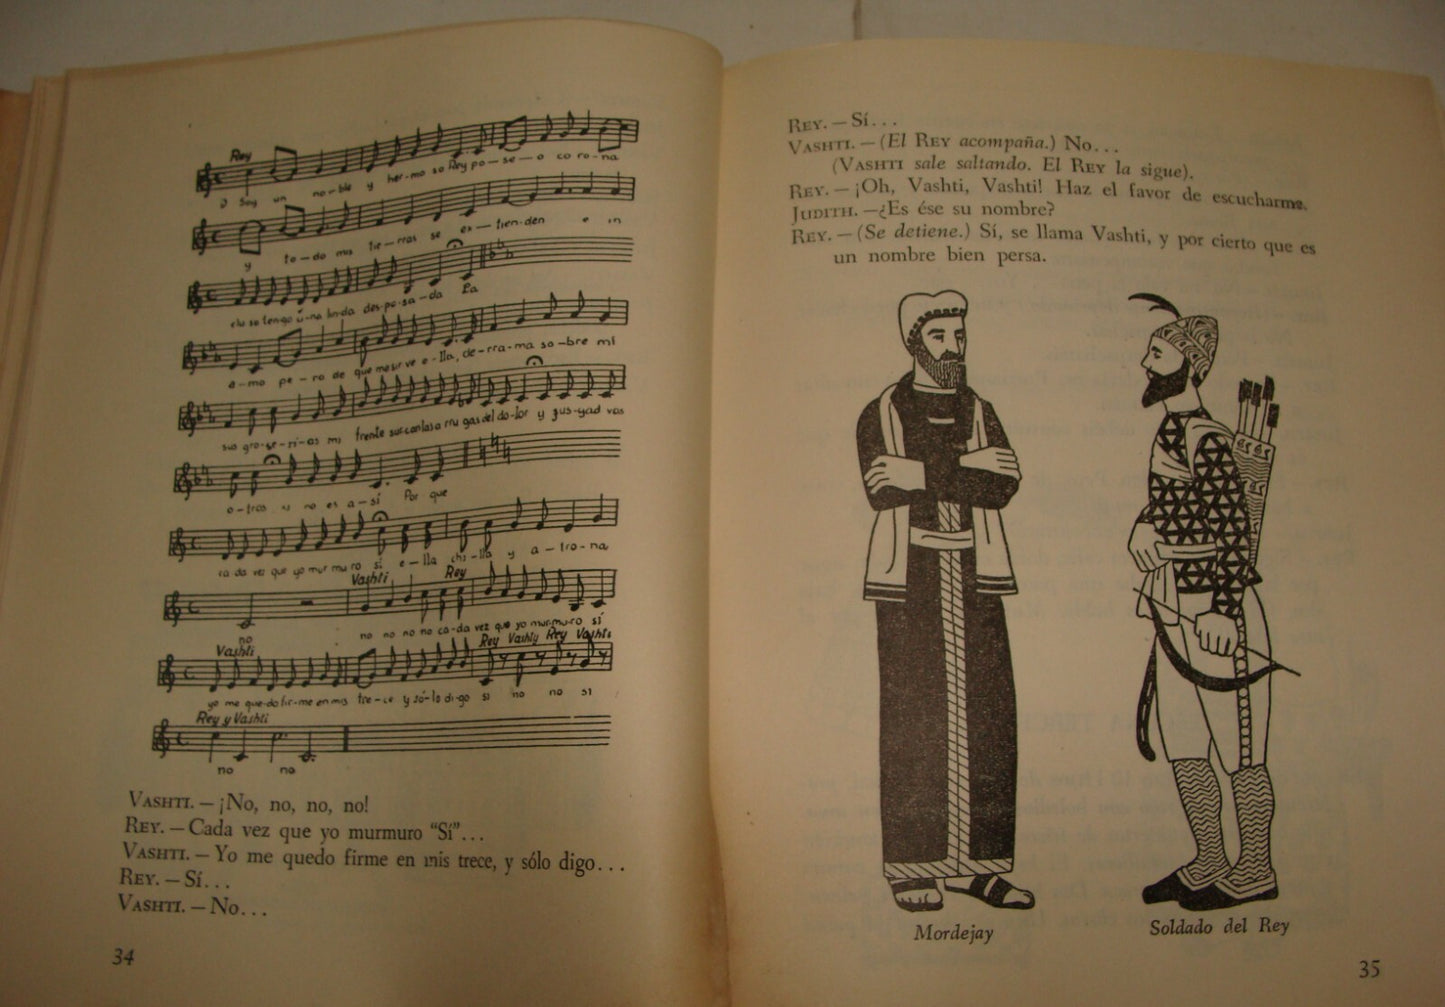 Rey
O Soy un no-ble y her-mo so Rey po-se-o co ro-na
y to-do mis tie-rras se ex-tien-den e in
clu so ten-go ú-na lin-da des-po-sa-da La
a-mo pe-ro de que me sir ve e-lla, de-rra-ma so-bre mi
sus gro-se-rí-as mi frente sur can las a rru gas del do-lor y juz-gad vos
o-tros si no es a-sí Por que
ca da vez que yo mur mu ro sí e-lla chi-lla y a-tro-na
Vashti Rey
no no no no no ca-da vez que yo mur-mu-ro sí
Vashti Rey Vashty Rey Vashti
yo me que-do fir-me en mis tre-ce y só-lo di-go si no no si
Rey y Vashti
no no
VASHTI. — ¡No, no, no, no!
REY. — Cada vez que yo murmuro "Sí"...
VASHTI. — Yo me quedo firme en mis trece, y sólo digo...
REY. — Sí...
VASHTI. — No...
34
REY. — Sí...
VASHTI. — (El REY acompaña.) No...
(VASHTI sale saltando. El REY la sigue).
REY. — ¡Oh, Vashti, Vashti! Haz el favor de escucharme.
JUDITH. — ¿Es ése su nombre?
REY. — (Se detiene.) Sí, se llama Vashti, y por cierto que es
un nombre bien persa.
Mordejay
Soldado del Rey
35